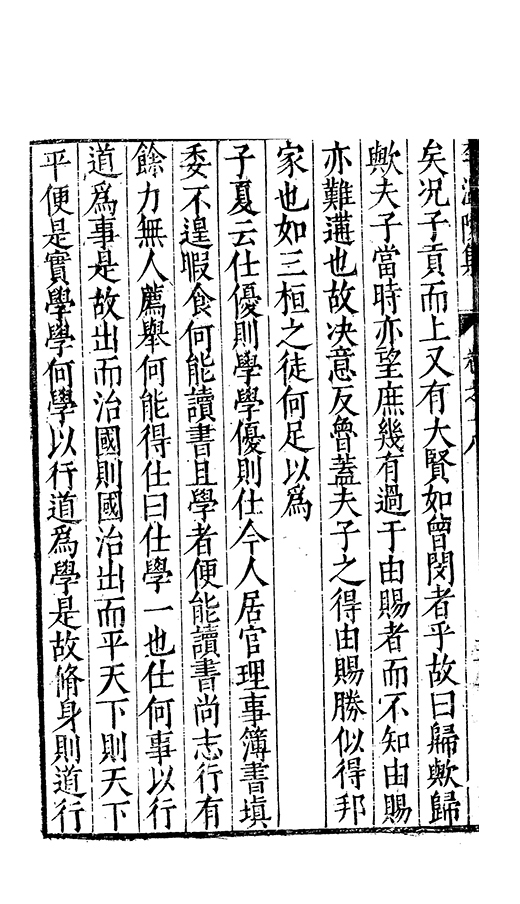 矣况子貢而上又有大賢如曾閔者乎故曰歸歟歸
歟夫子當時亦望庶幾有過于由賜者而不知由賜
亦難遘也故決意反魯蓋夫子之得由賜勝似得邦
家也如三桓之徒何足以爲
子夏云仕優則學學優則仕今人居官理事簿書塡
委不遑暇食何能讀書且學者便能讀書尚志行有
餘力無人薦舉何能得仕曰仕學一也仕何事以行
道爲事是故出而治國則國治出而平天下則天下
平便是實學學何學以行道爲學是故脩身則道行